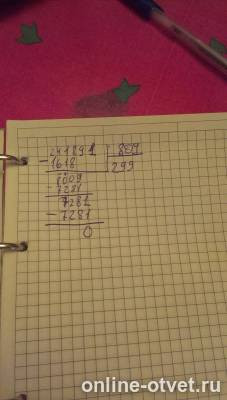 241891 | 809
- 1618 | 299
8009
- 7281
7281
- 7281
0
online-otvet.ru